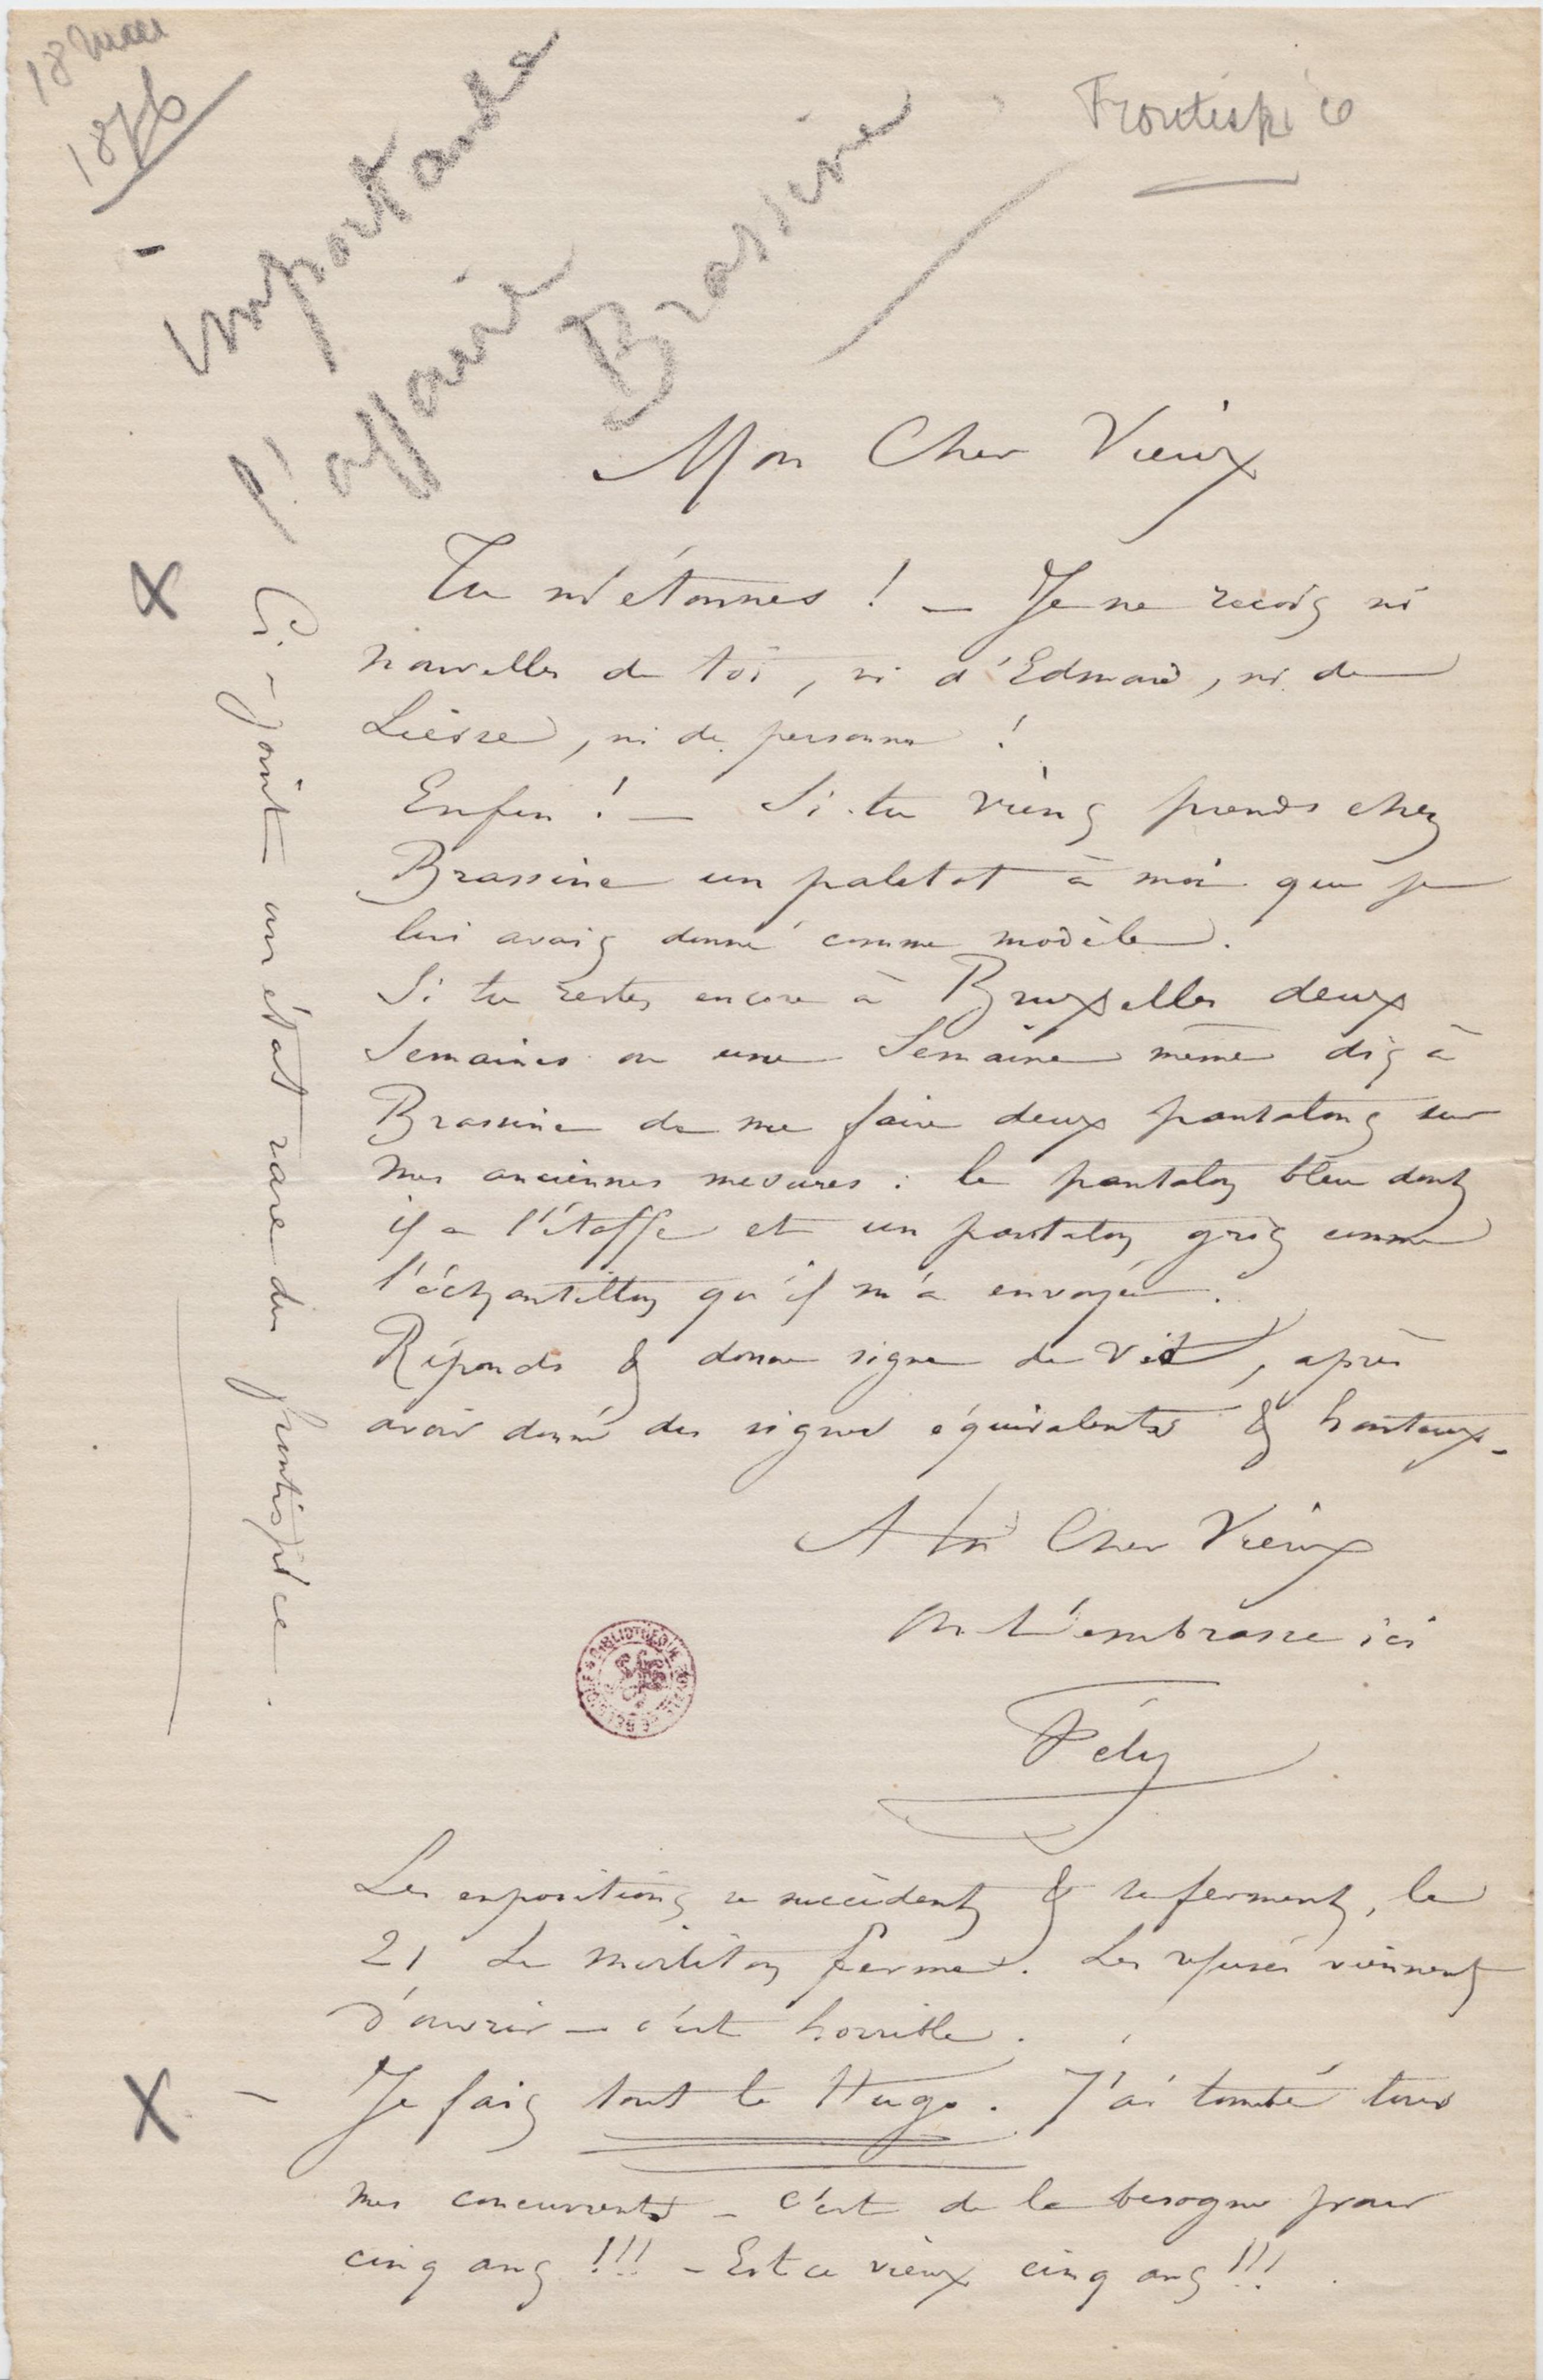 18 mai
1876
importante
l'affaire
Brassine
Frontispice
Mon Cher Vieux
Tu m'étonnes ! – Je ne reçois ni
nouvelles de toi, ni d'Edmond, ni de
Liesse, ni de personne !
Enfin ! – Si tu viens prends chez
Brassine un paletot à moi que je
lui avais donné comme modèle.
Si tu restes encore à Bruxelles deux
Semaines ou une Semaine même dis à
Brassine de me faire deux pantalons sur
mes anciennes mesures : le pantalon bleu dont
il a l'étoffe et un pantalon gris comme
l'échantillon qu'il m'a envoyé.
Réponds & donne signe de vit, après
avoir donné des signes équivalents & honteux –
A toi Cher Vieux
On t'embrasse ici
Fély
Les expositions se succèdent & se ferment, le
21 Le Mirliton ferme. Les refusés viennent
d'ouvrir – c'est horrible.
– Je fais tout le Hugo. J'ai tombé tous
mes concurrents – c'est de la besogne pour
cinq ans !!! – Est ce vieux cinq ans !!!
Ci-joint un état rare du frontispice.